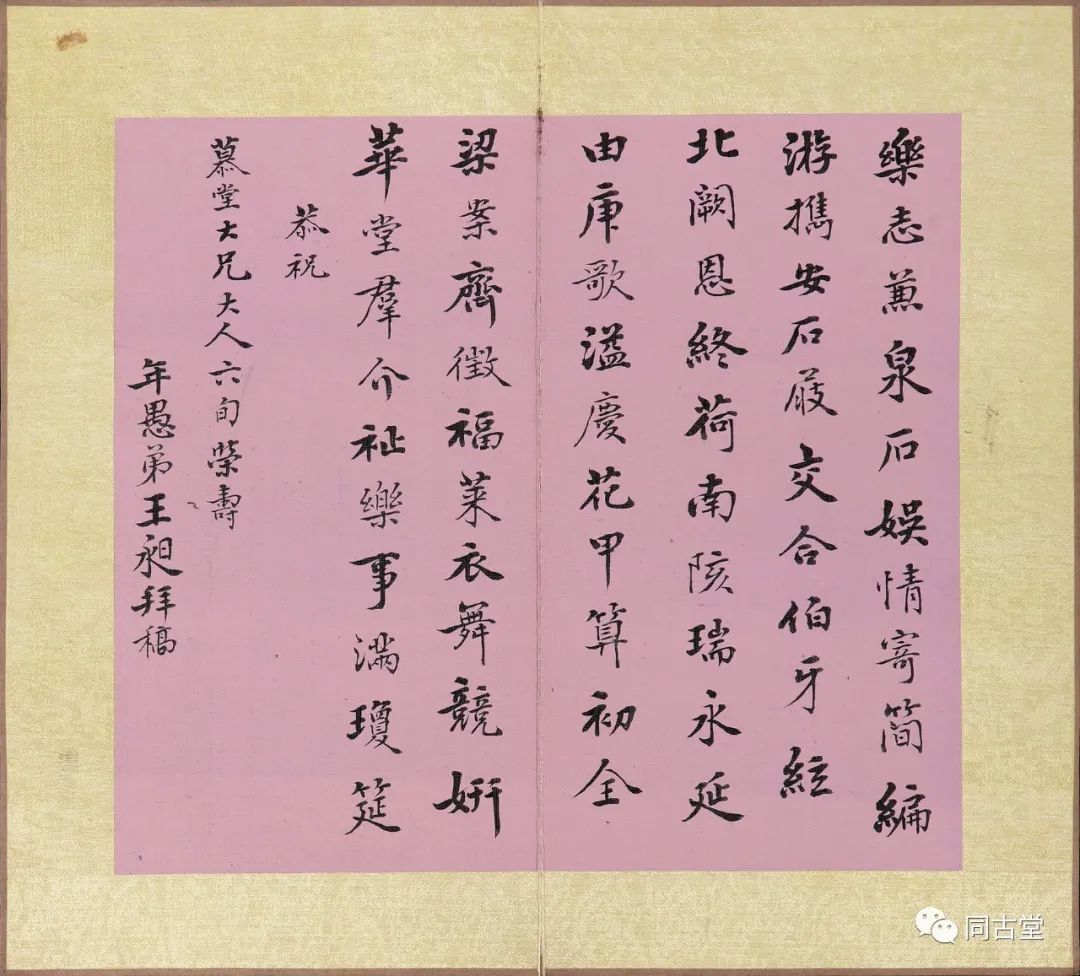 樂志兼泉石娛情寄簡編
游攜安石屐交合伯牙絃
北闕恩終荷南陔瑞永延
由庚歌溢慶花甲算初全
梁案齊徵福萊衣舞競妍
華堂羣介祉樂事滿瓊筵
恭祝
慕堂大兄大人六旬榮壽
年愚弟王昶拜稿
同古堂